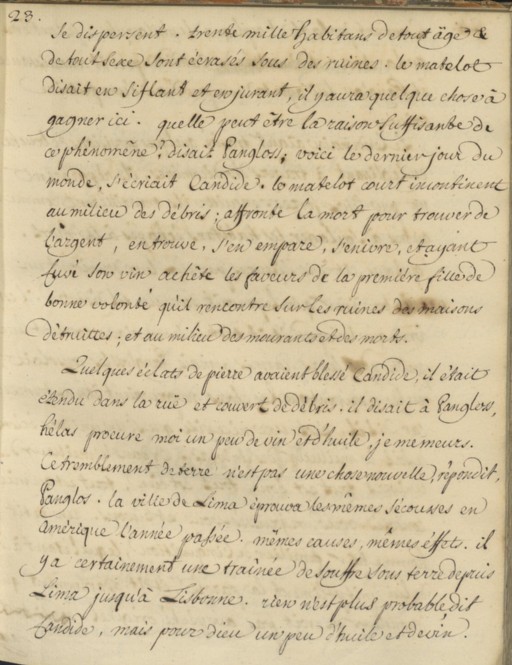 28.
se dispersent. trente mille habitans de tout âge &
de tout sexe sont écrasés sous des ruines. le matelot
disait en siflant et en jurant, il y aura quelque chose à
gagner ici. quelle peut être la raison suffisante de
ce phénomène? disait Pangloss; voici le dernier jour du
monde, s'écriait Candide. le matelot court incontinent
au milieu des débris; affronte la mort pour trouver de
l'argent, en trouve, s'en empare, s'enivre, et ayant
cuvé son vin achète les faveurs de la première fille de
bonne volonté qu'il rencontre sur les ruines des maisons
détruittes; et au milieu des mourants et des morts.
Quelques éclats de pierre avaient blessé Candide, il était
étendu dans la ruë et couvert de débris. il disait à Pangloss,
hélas procure moi un peu de vin et d'huile, je me meurs.
Ce tremblement de terre n'est pas une chose nouvelle, répondit,
Panglos. la ville de Lima éprouva les mêmes sécousses en
amérique l'année passée. mêmes causes, mêmes éffets. il
y a certainement une trainée de souffre sous terre depuis
Lima jusqu'à Lisbonne. rien n'est plus probable dit
Candide, mais pour dieu un peu d'huile et de vin.